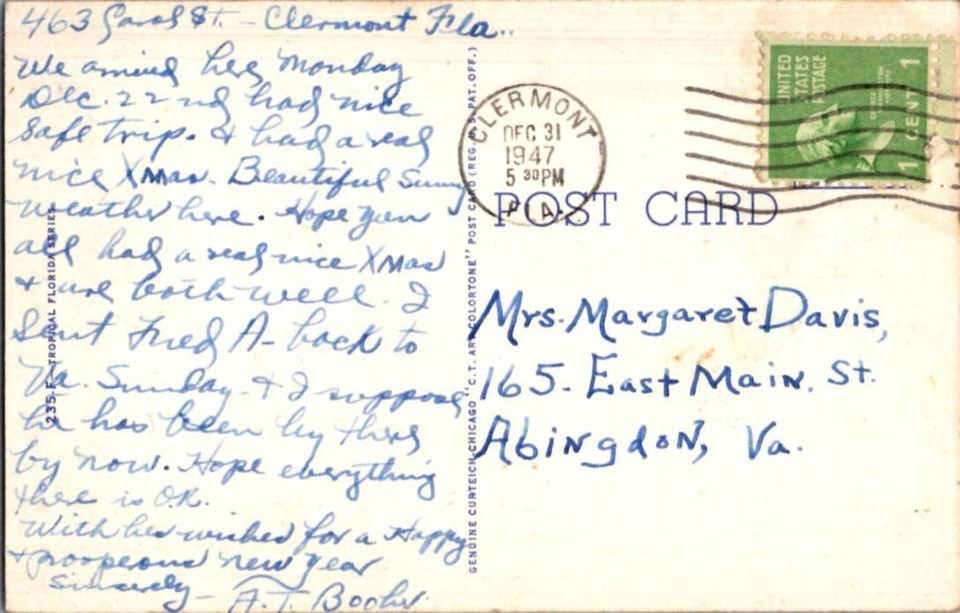 463 St. - Clermont Fla..
We arrived here Monday
Dec. 22nd had nice
safe trip. & had a real
nice XMas. Beautiful Sunny
weather here. Hope you
all had a real nice XMas
& are both well. I
Sent Fred A- back to
Va. Sunday & I suppose
he has been by there
by now. Hope everything
there is O.K.
With best wishes for a Happy
& prosperous new year
Sincerely - A.T.
235 - TROPICAL FLORIDA SERIES
GENUINE CURTEICH-CHICAGO "C.T. ART-COLORTONE" POST CARD (REG. U.S. PAT. OFF.)
CLERMONT
DEC 31
1947
5 30 PM
FLA.
UNITED
STATES
POSTAGE
1 CENT 1
POST CARD
Mrs. Margaret Davis,
165- East Main. St.
Abingdon, Va.